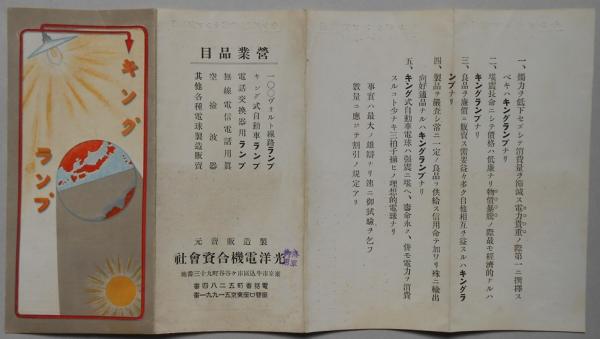 一、燭力ヲ低下セズシテ消費量ヲ節減ス電力貴重ノ際第一ニ推撰ス
ベキハキングランプナリ
二、堪震長命ニシテ價格ハ低廉ナリ物價暴騰ノ際最モ經濟的ナルハ
キングランプナリ
三、良品ヲ廉價ニ販賣ス需要益々多ク自他相互ヲ益スルハキングラ
ンプナリ
四、製品ヲ嚴査シ常ニ一定ノ良品ヲ供給ス信用命テ加ワリ殊ニ輸出
向好適品ナルハキングランプナリ
五、キング式自動車電球ハ強震ニ堪ヘ、壽命永ク、併モ電力ヲ消費
スルコト少ナキ三拍子揃ヒノ理想的電球ナリ
事實ハ最大ノ雄辯ナリ速ニ御試驗ヲ乞フ
數量ニ應ジテ割引ノ規定アリ
營業品目
一〇〇ヴォルト線路ランプ
キング式自動車ランプ
電話交換器用ランプ
無線電信電話用眞
空檢波器
其他各種電球製造販賣
製造販賣元
光洋電機合資會社
東京市牛込區市ケ谷谷町九十三番地
電話番町五二八四番
振替口座東京五一九九一番
キング
ランプ